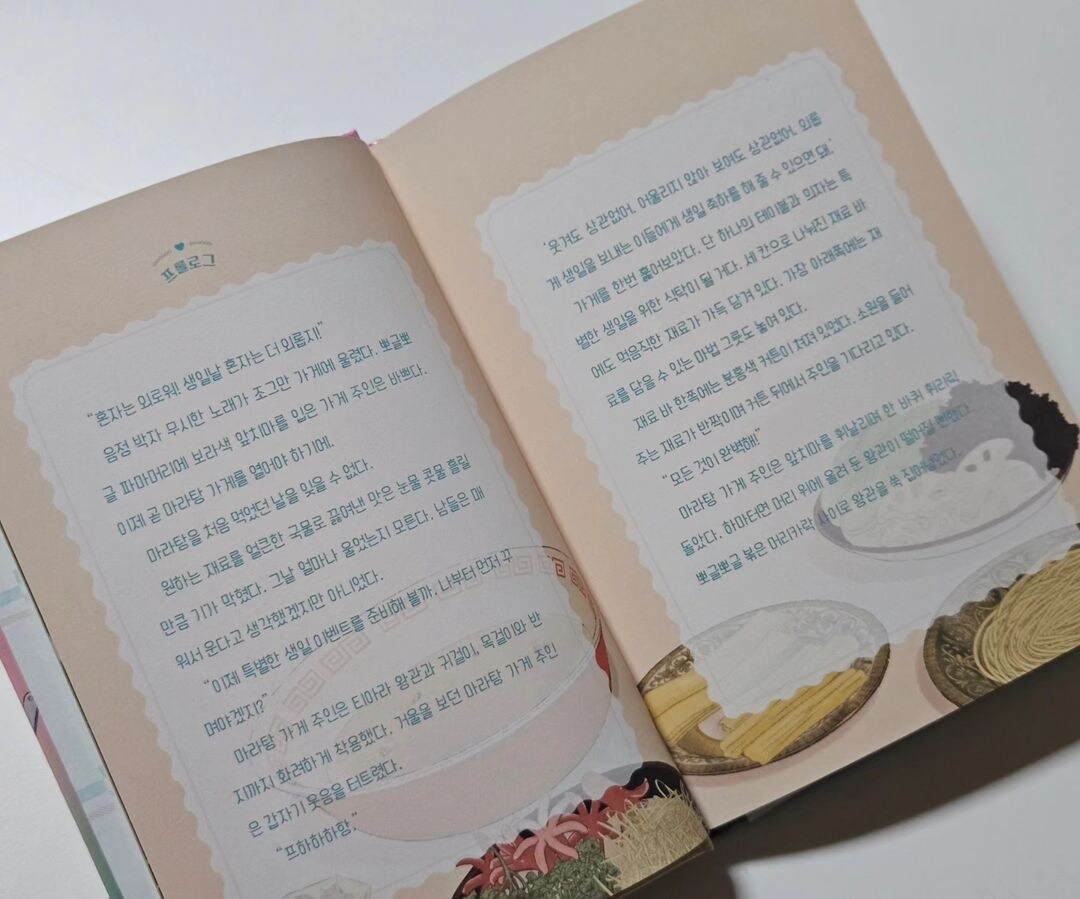 프롤로그
“혼자는 외로워! 생일날 혼자는 더 외롭지!”
음정 박자 무시한 노래가 조그만 가게에 울렸다. 뽀글뽀
글 파마머리에 보라색 앞치마를 입은 가게 주인은 바쁘다.
이제 곧 마라탕 가게를 열어야 하기에.
마라탕을 처음 먹었던 날을 잊을 수 없다.
원하는 재료를 얼큰한 국물로 끓여낸 맛은 눈물 콧물 흘릴
만큼 기가 막혔다. 그날 얼마나 울었는지 모른다. 남들은 매
워서 운다고 생각했겠지만 아니었다.
“이제 특별한 생일 이벤트를 준비해 볼까. 나부터 먼저 꾸
며야겠지?”
마라탕 가게 주인은 티아라 왕관과 귀걸이, 목걸이와 반
지까지 화려하게 착용했다. 거울을 보던 마라탕 가게 주인
은 갑자기 웃음을 터트렸다.
“프하하하항.”
‘웃겨도 상관없어. 어울리지 않아 보여도 상관없어. 외롭
게 생일을 보내는 이들에게 생일 축하를 해 줄 수 있으면 돼.’
가게를 한번 훑어보았다. 단 하나의 테이블과 의자는 특
별한 생일을 위한 식탁이 될 거다. 세 칸으로 나눠진 재료 바
에도 먹음직한 재료가 가득 담겨 있다. 가장 아래쪽에는 재
료를 담을 수 있는 마법 그릇도 놓여 있다.
재료 바 한쪽에는 분홍색 커튼이 쳐져 있었다. 소원을 들어
주는 재료가 반짝이며 커튼 뒤에서 주인을 기다리고 있다.
“모든 것이 완벽해!”
마라탕 가게 주인은 앞치마를 휘날리며 한 바퀴 휘리릭
돌았다. 하마터면 머리 위에 올려 둔 왕관이 떨어질 뻔했다.
뽀글뽀글 볶은 머리카락 사이로 왕관을 쏙 집어넣었다.